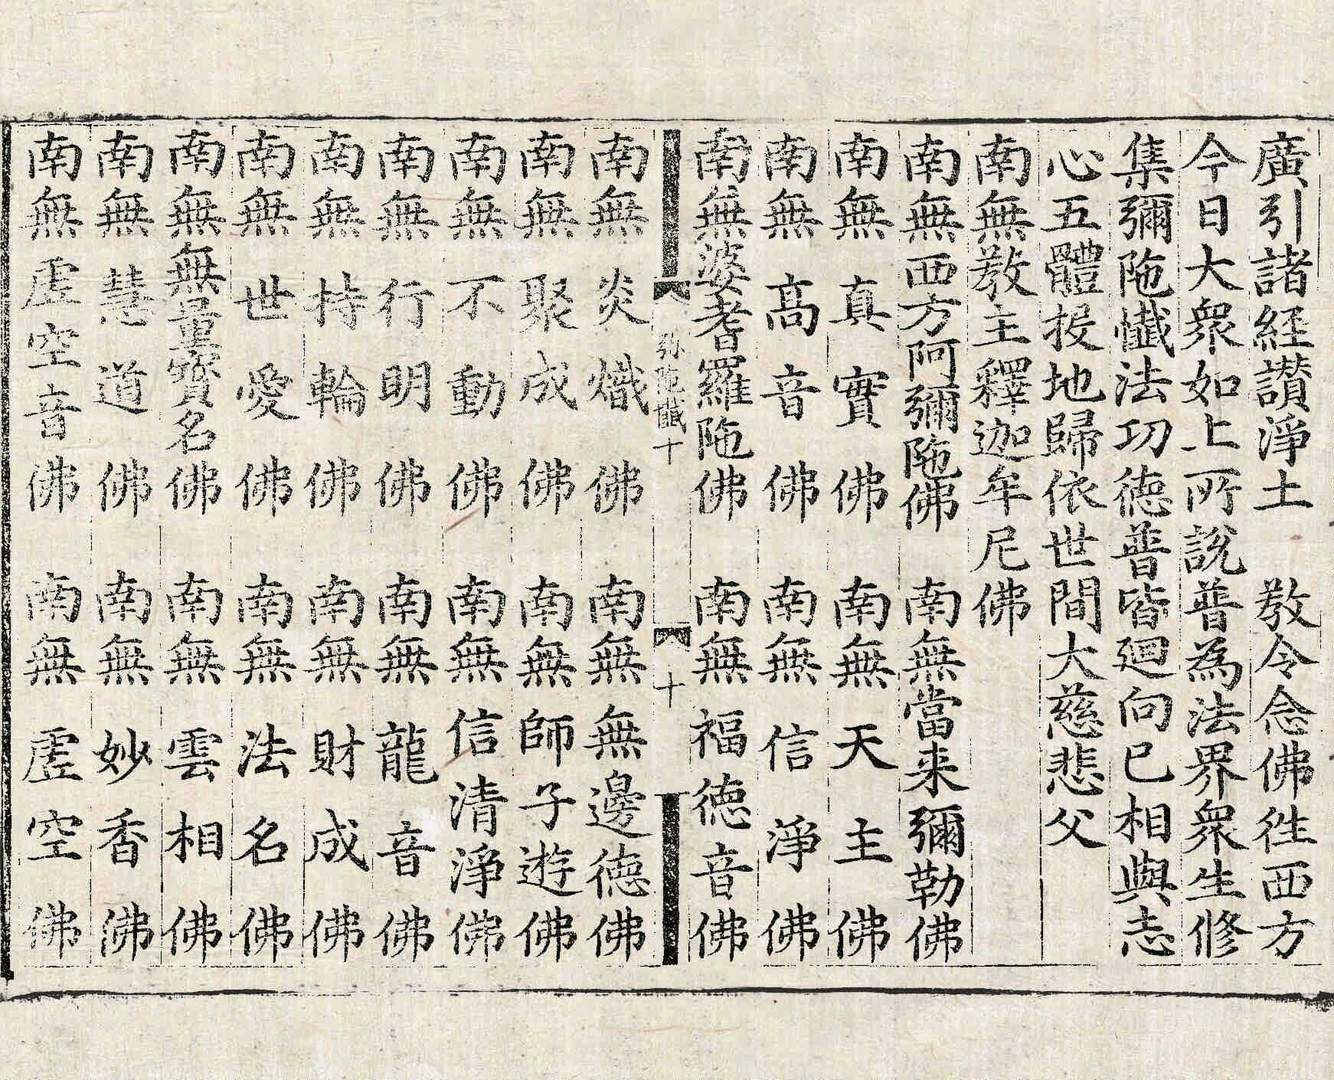 廣引諸経讃淨土　教令念佛徃西方
今日大衆如上所說普為法界衆生修
集彌陁懺法功徳普皆廻向已相與志
心五體投地歸依世間大慈悲父
南無教主釋迦牟尼佛
南無西方阿彌陁佛　南無當来彌勒佛
南無真實佛　南無天主佛
南無高音佛　南無信淨佛
南無婆耆羅陁佛　南無福徳音佛
弥陁懺十　十
南無炎熾佛　南無無邊徳佛
南無聚成佛　南無師子遊佛
南無不動佛　南無信清淨佛
南無行明佛　南無龍音佛
南無持輪佛　南無財成佛
南無世愛佛　南無法名佛
南無無量寶名佛　南無雲相佛
南無慧道佛　南無妙香佛
南無虛空音佛　南無虛空佛